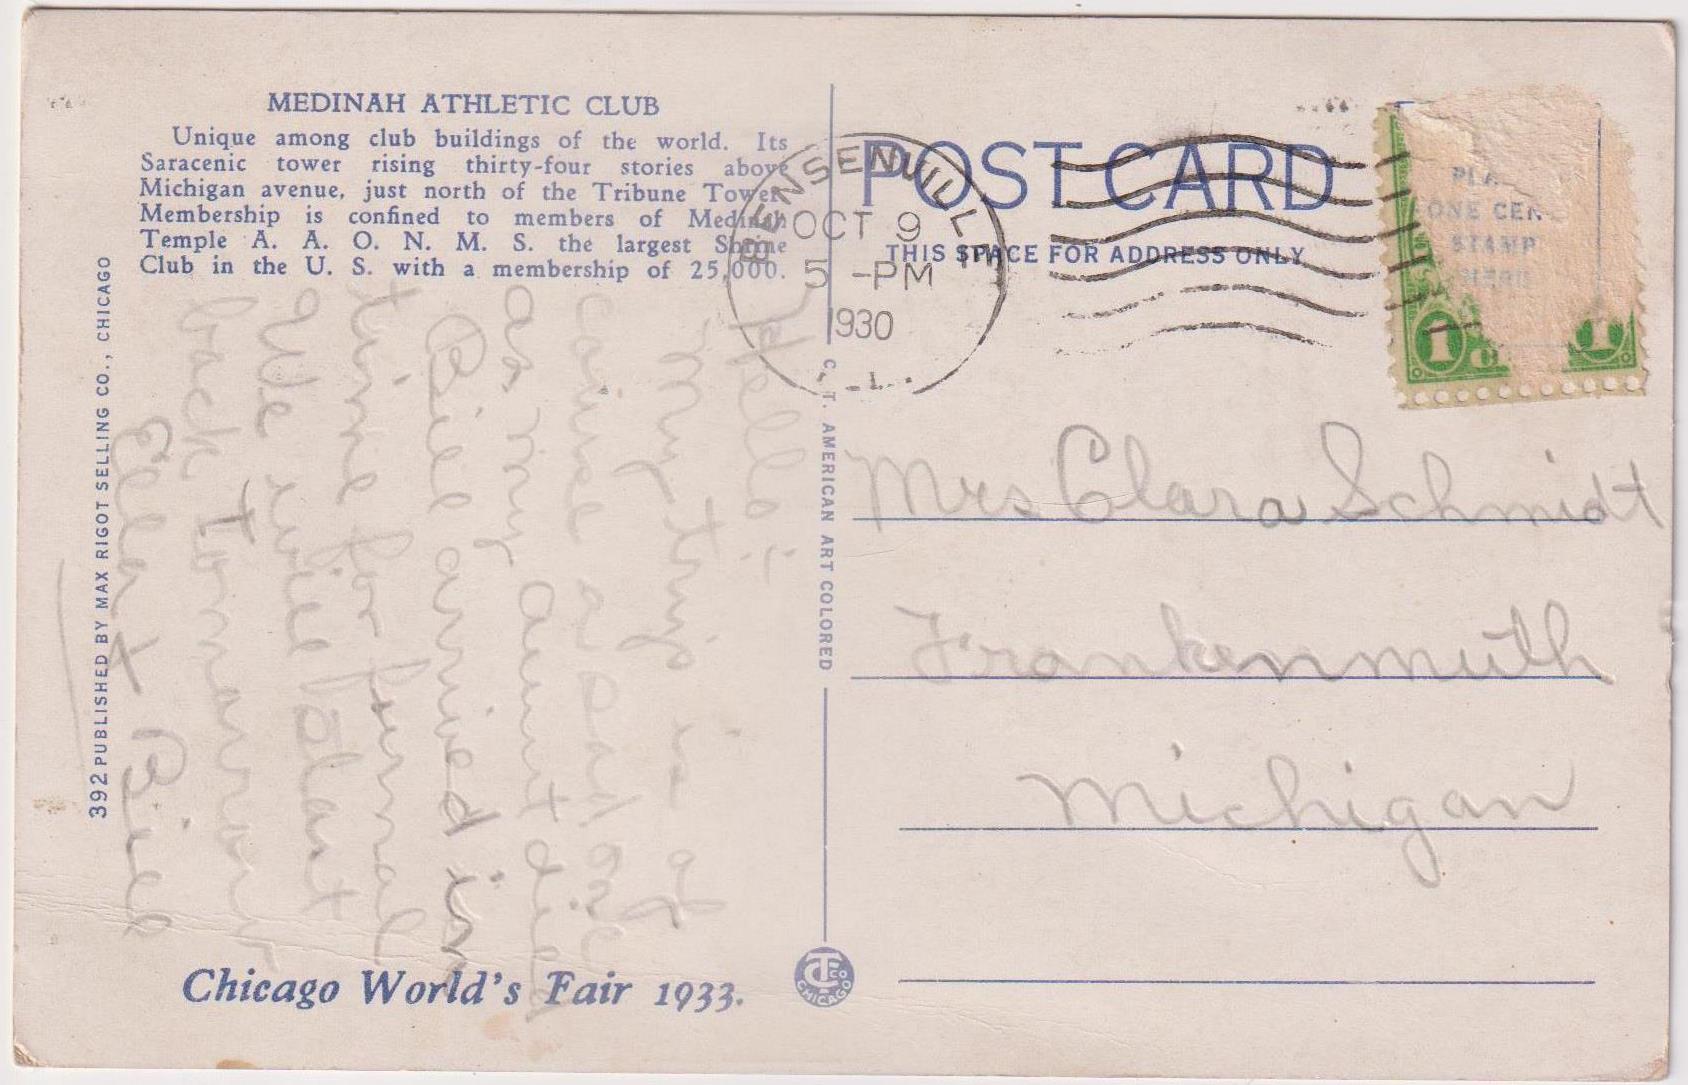 MEDINAH ATHLETIC CLUB
Unique among club buildings of the world. Its
Saracenic tower rising thirty-four stories above
Michigan avenue, just north of the Tribune Tower.
Membership is confined to members of Medinah
Temple A. A. O. N. M. S. the largest Shrine
Club in the U. S. with a membership of 25,000.
Hello:-
My trip is of
course a sad one
as my Aunt died
Bill arrived in
time for funeral
We will start
back Tomorrow
Ella + Bill
Chicago World's Fair 1933.
392 PUBLISHED BY MAX RIGOT SELLING CO., CHICAGO
C. T. AMERICAN ART COLORED
CT CO
CHICAGO
BENSENVILLE
OCT 9
5 -PM
1930
ILL.
POST CARD
THIS SPACE FOR ADDRESS ONLY
ONE CENT
STAMP
HERE
1 1
Mrs Clara Schmidt
Frankenmuth
Michigan